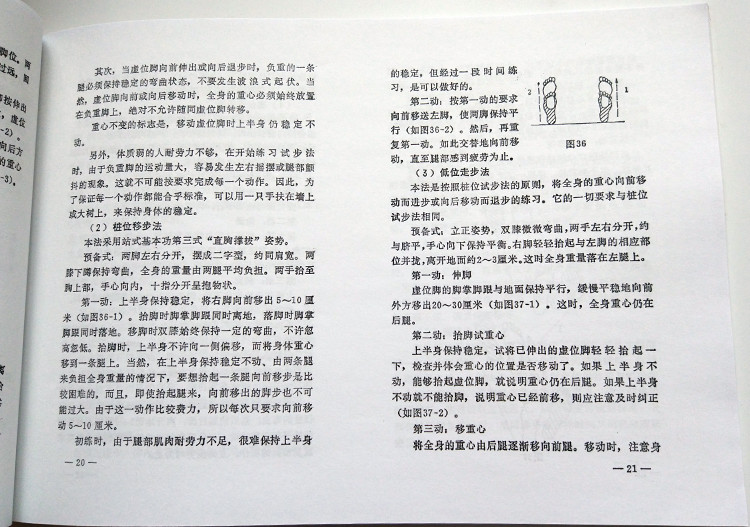 脚位。两
过远，则
将按伸出
，虚位
-2）。
向后方
的重心
-3）。
其次，当虚位脚向前伸出或向后退步时，负重的一条
腿必须保持稳定的弯曲状态，不要发生波浪式起伏。当
然，虚位脚向前或向后移动时，全身的重心必须始终放置
在负重脚上，绝对不允许随同虚位脚转移。
重心不变的标志是，移动虚位脚时上半身仍稳定不
动。
另外，体质弱的人耐劳力不够，在开始练习试步法
时，由于负重脚的运动量大，容易发生左右摇摆或腿部颤
抖的现象。这就不可能按要求完成每一个动作。因此，为
了保证每一个动作都能合乎标准，可以用一只手扶在墙上
或大树上，来保持身体的稳定。
（2）桩位移步法
本法采用站式基本功第三式“直胸撑拔”姿势。
预备式：两脚左右分开，摆成二字型，约同肩宽。两
膝下蹲保持弯曲，全身的重量由两腿平均负担。两手抬至
胸上部，手心向内，十指分开呈抱物状。
第一动：上半身保持稳定，将右脚向前移出5～10厘
米（如图36-1）。抬脚时脚掌脚跟同时离地，落脚时脚掌
脚跟同时落地。移脚时双膝始终保持一定的弯曲，不许忽
高忽低。抬脚时，上半身不许向一侧偏移，而将身体重心
移到一条腿上。当然，在上半身保持稳定不动、由两条腿
来负担全身重量的情况下，要想抬起一条腿向前移步是比
较困难的。而且，即使抬起腿来，向前移出的脚步也不可
能过大。由于这一动作比较费力，所以每次只要求向前移
动5～10厘米。
初练时，由于腿部肌肉耐劳力不足，很难保持上半身
— 20 —
的稳定，但经过一段时间练
习，是可以做好的。
第二动：按第一动的要求
向前移送左脚，使两脚保持平
行（如图36-2）。然后，再重
复第一动。如此交替地向前移
动，直至腿部感到疲劳为止。
2
1
图36
（3）低位走步法
本法是按照桩位试步法的原则，将全身的重心向前移
动而进步或向后移动而退步的练习。它的一切要求与桩位
试步法相同。
预备式：立正姿势，双膝微微弯曲，两手左右分开，约
与脐平，手心向下保持平衡。右脚轻轻抬起与左脚的相应部
位并拢，离开地面约2～3厘米。这时全身重量落在左腿上。
第一动：伸脚
虚位脚的脚掌脚跟与地面保持平行，缓慢平稳地向前
外方移出20～30厘米（如图37-1）。这时，全身重心仍在
后腿。
第二动：抬脚试重心
上半身保持稳定，试将已伸出的虚位脚轻轻抬起一
下，检查并体会重心的位置是否移动了。如果上半身不
动，能够抬起虚位脚，就说明重心仍在后腿。如果上半身
不动就不能抬脚，说明重心已经前移，则应注意及时纠正
（如图37-2）。
第三动：移重心
将全身的重心由后腿逐渐移向前腿。移动时，注意身
— 21 —